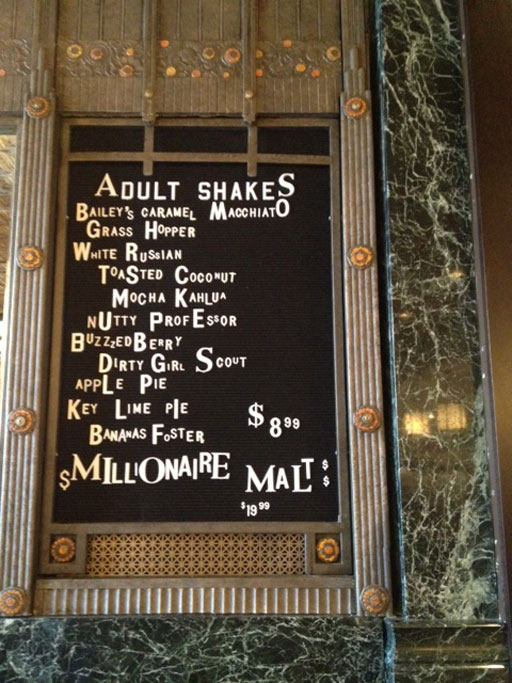 ADULT SHAKES
BAILEY'S CARAMEL MACCHIATO
GRASS HOPPER
WHITE RUSSIAN
TOASTED COCONUT
MOCHA KAHLUA
NUTTY PROFESSOR
BUZZZED BERRY
DIRTY GIRL SCOUT
APPLE PIE
KEY LIME PIE
$8.99
BANANAS FOSTER
$MILLIONAIRE MALT $$
$19.99